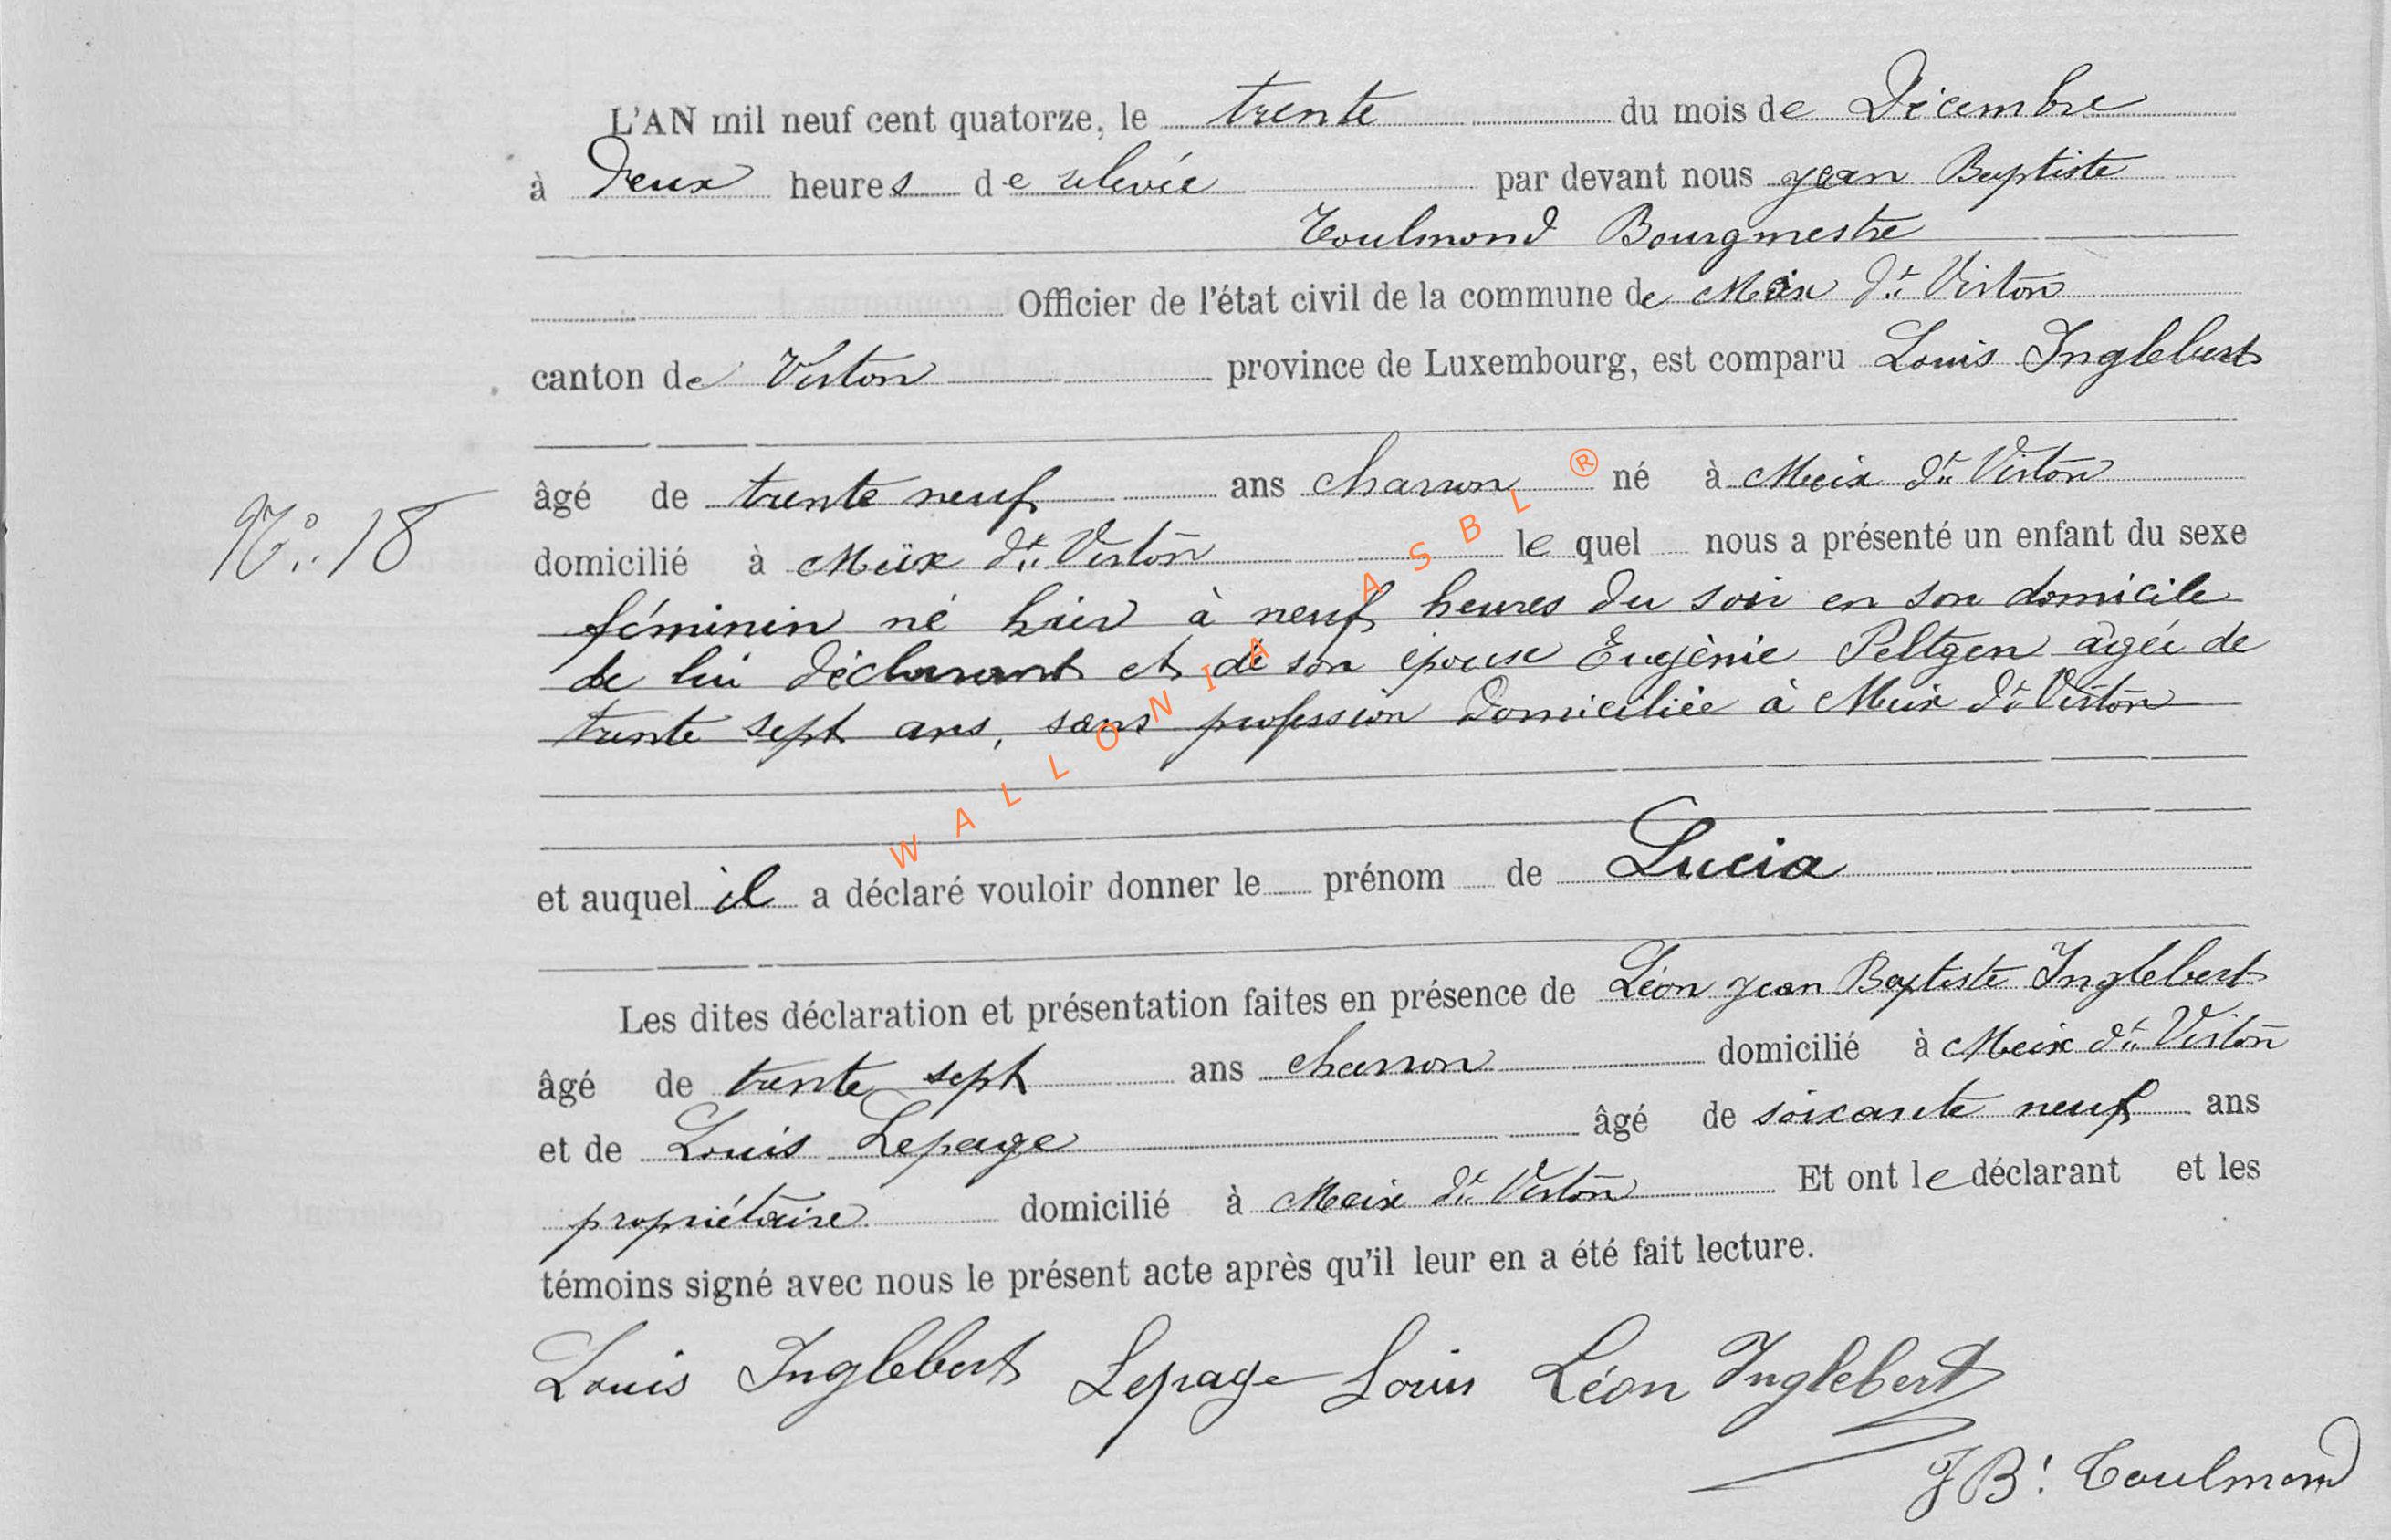 L'AN mil neuf cent quatorze, le trente du mois de Décembre
à Deux heures de relevée par devant nous jean Baptiste
Toulmond Bourgmestre
Officier de l'état civil de la commune de Meix dt Virton
canton de Virton province de Luxembourg, est comparu Louis Inglebert
âgé de trente neuf ans charron né à Meix dt Virton
N° 18
domicilié à Meix dt Virton lequel nous a présenté un enfant du sexe
féminin né hier à neuf heures du soir en son domicile
de lui déclarant et de son épouse Eugènie Peltgen agée de
trente sept ans, sans profession domiciliée à Meix dt Virton
et auquel il a déclaré vouloir donner le prénom de Lucia
Les dites déclaration et présentation faites en présence de Léon jean Baptiste Inglebert
âgé de trente sept ans charron domicilié à Meix dt Virton
et de Louis Lepage âgé de soixante neuf ans
propriétaire domicilié à Meix dt Virton Et ont le déclarant et les
témoins signé avec nous le présent acte après qu'il leur en a été fait lecture.
Louis Inglebert Lepage Louis Léon Inglebert
JB: Toulmond
WALLONIA ASBL ®